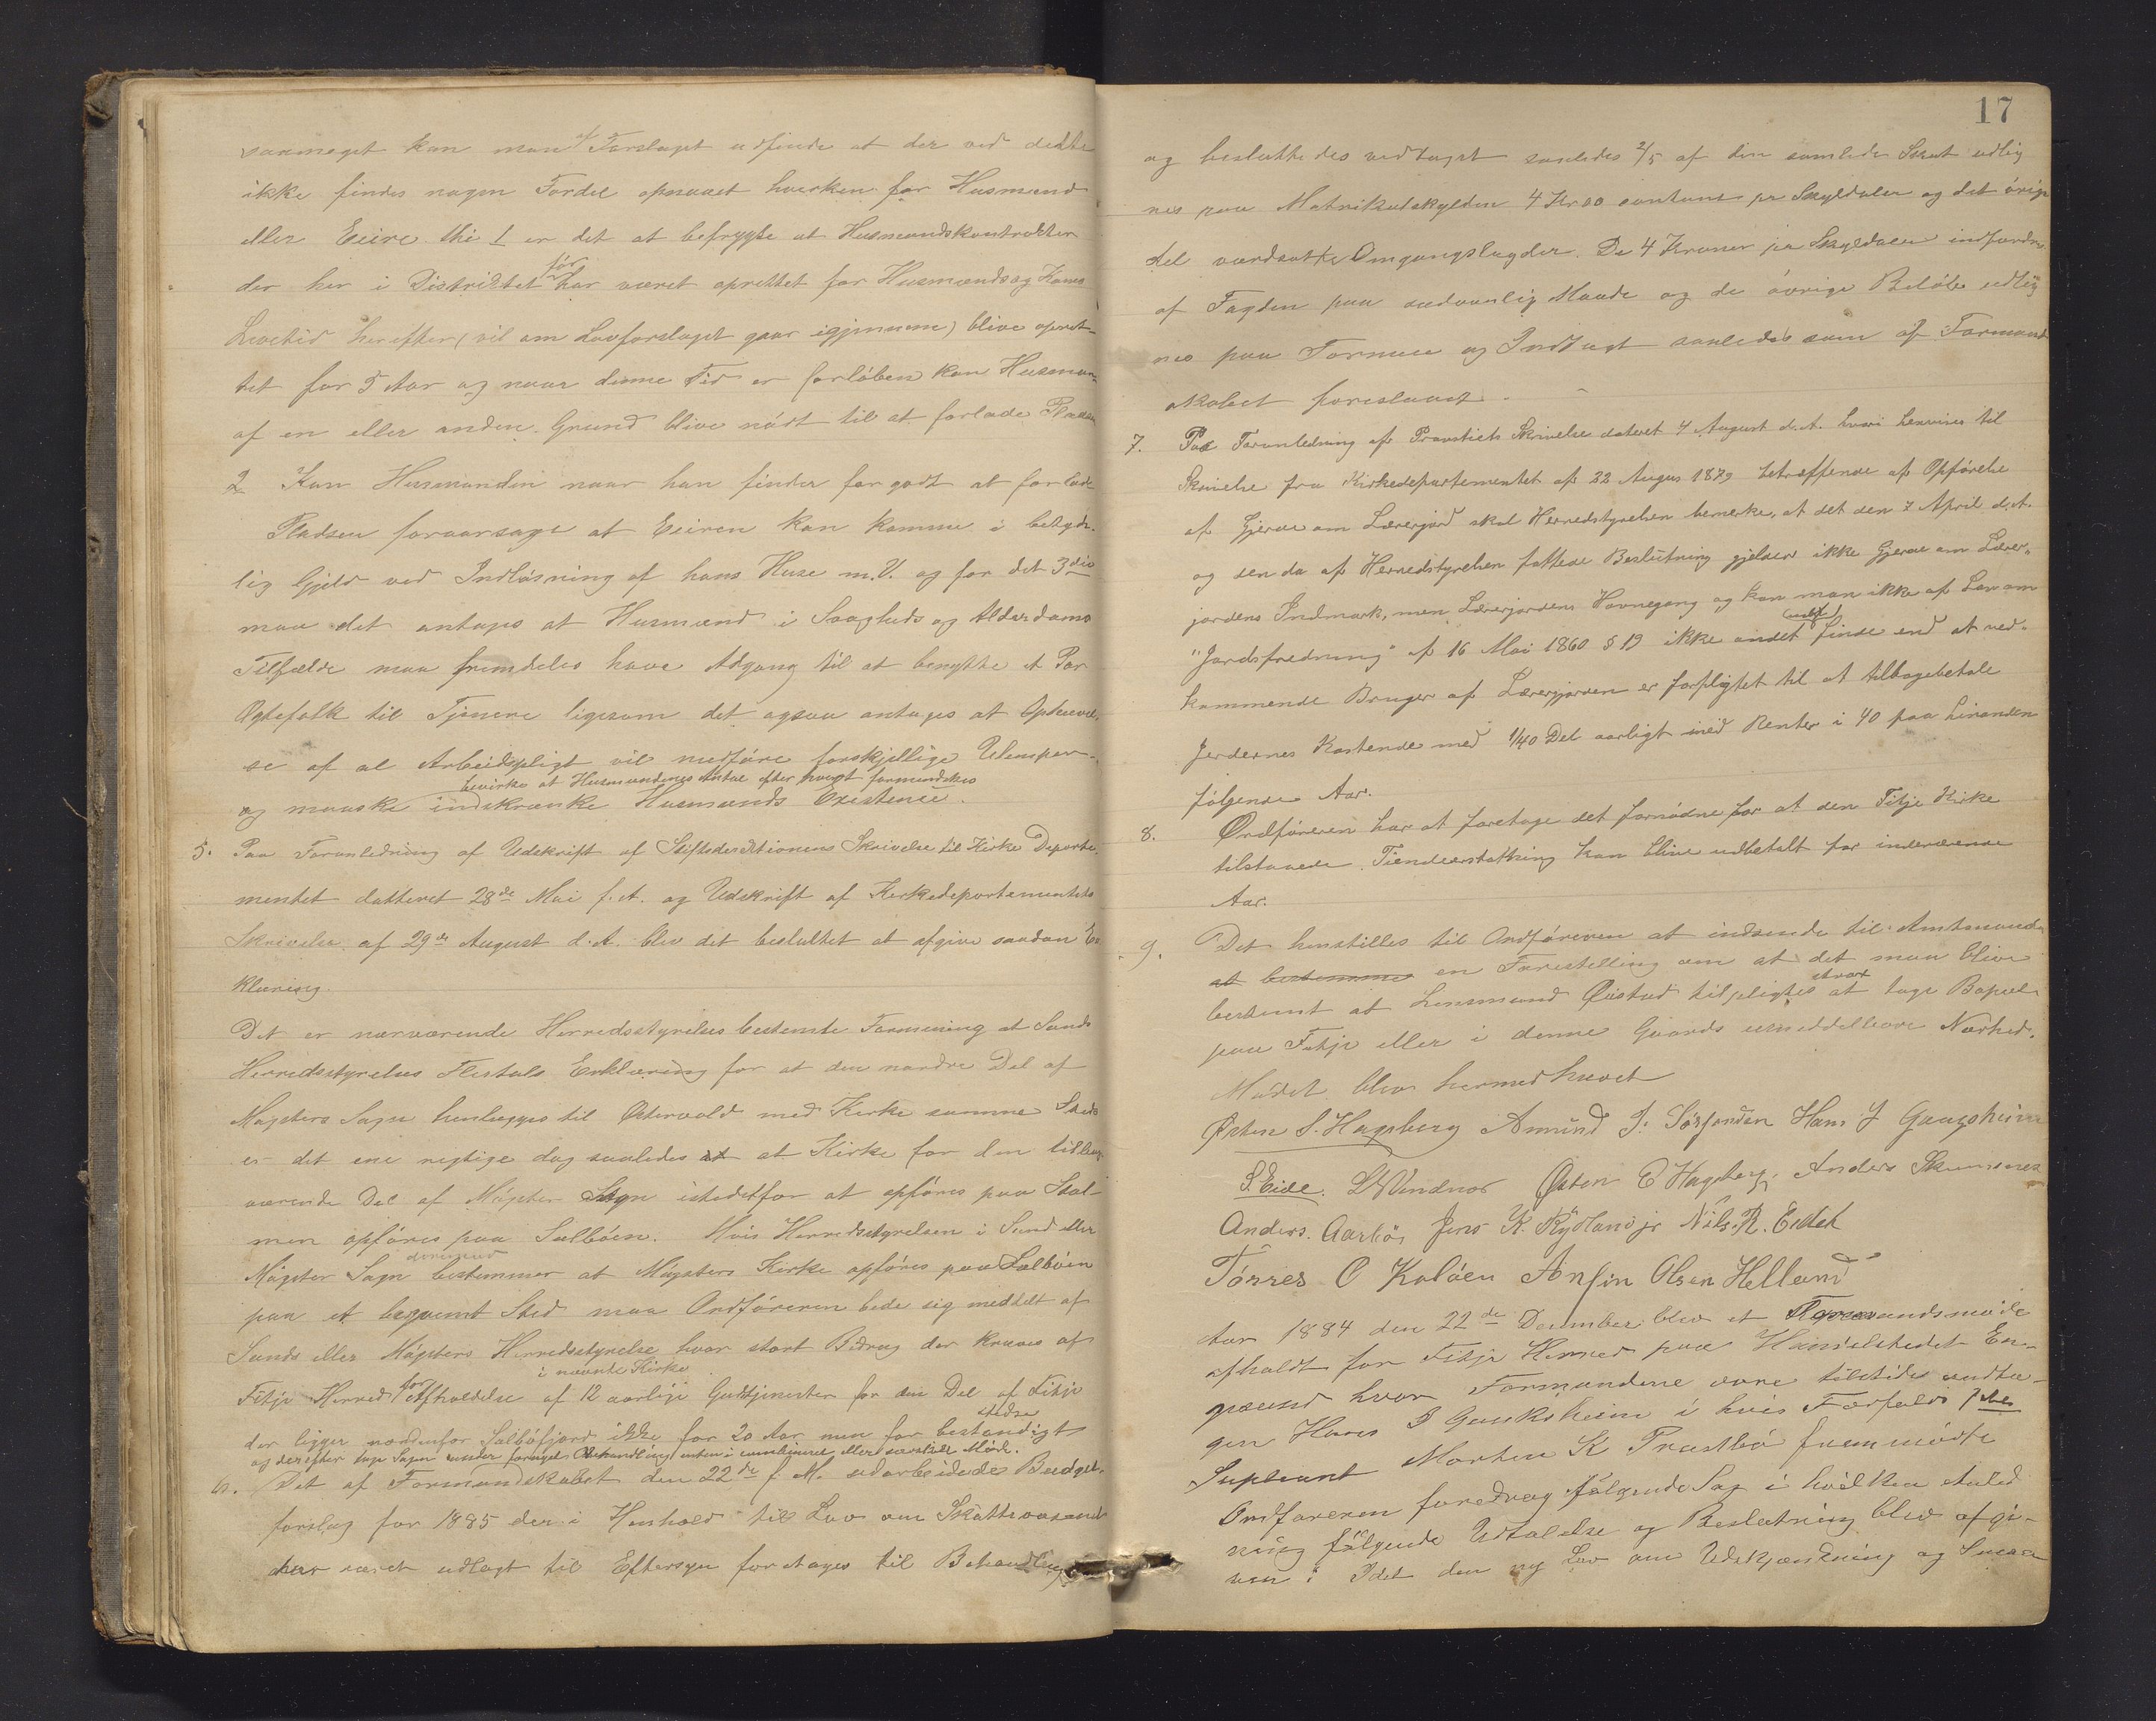 saameget kan man af Forslaget udfinde at der ved dette
ikke findes nogen Fordel opnaaet hverken for Husmænd
eller Eiere thi 1 er det at befrygte at Husmandskontrakter
der her i Distriktet før har været oprettet for Husmands og Kones
Levetid herefter (vil om Lovforslaget gaar igjennem) blive opret-
tet for 5 Aar og naar denne Tid er forløben kan Husman
af en eller anden Grund blive nødt til at forlade Pladsen
2 Kan Husmanden naar han finder for godt at forlade
Pladsen foraarsage at Eieren kan komme i betyde-
lig Gjeld ved Indløsning af hans Huse m.V. og for det 3die
maa det antages at Husmænd i Svagheds og Alderdoms
Tilfælde maa fremdeles have Adgang til at benytte et Par
Ægtefolk til Tjenere ligesom det ogsaa antages at Ophævel-
se af al Arbeidspligt vil medføre forskjellige Ulemper
bevirke at Husmændenes Antal efter hvert formindskes
og maaske indskrænke Husmænds Existence.
5. Paa Foranledning af Udskrift af Stiftsdirektionens Skrivelse til Kirke Departe-
mentet datteret 28de Mai f. A. og Udskrift af Kirkedepartementets
Skrivelse af 29de August d. A. blev det besluttet at afgive saadan Er
klæring.
Det er nærværende Herredsstyrelses bestemte Formening at Sunds
Herredsstyrelses Flertals Erklæring for at den nordre Del af
Møgsters Sogn henlægges til Østervold med Kirke samme Sted
er det ene rigtige dog saaledes at at Kirke for den tilbage
værende Del af Møgster Sogn istedetfor at opføres paa Stol-
men opføres paa Selbøen. Hvis Herredsstyrelsen i Sund eller
Møgster Sogn bestemmer at Møgsters Kirke opføres paa Selbøen
paa et beqvemt Sted maa Ordføreren bede sig meddelt af
Sunds eller Møgsters Herredsstyrelse hvor stort Bidrag der kræves af
i nævnte Kirke
Fitje Herred for Afholdelse af 12 aarlige Gudstjenester for den Del af Fitje
der ligger nordenfor Selbøfjord ikke for 20 Aar men for bestandigt stedse
og derefter tage Sagen under fornyet Behandling enten i combineret eller særskilt Møde.
6. Det af Formandskabet den 22de f. M. udarbeidede Budget-
forslag for 1885 der i Henhold til Lov om Skattevæsenet
har været udlagt til Eftersyn foretages til Behandling
17
og besluttedes vedtaget saaledes 2/5 af den samlede Skat udlig
nes paa Matrikulskylden 4 Kr 00 contant pr Skyldaler og det øvrige
del værdsatte Omgangslægder. De 4 Kroner pr Skyldaler indfordres
af Fogden paa sædvanlig Maade og de øvrige Beløbe udlig
nes paa Formue og Indtægt saaledes som af Formand
skabet foreslaaet.
7. Paa Foranledning af Provstiets Skrivelse dateret 4 August d. A. hvori henvises til
Skrivelse fra Kirkedepartementet af 22 Augus 1879 betræffende af Opførelse
af Gjerde om Lærerjord skal Herredstyrelsen bemerke, at det den 7 April d. A.
og den da af Herredstyrelsen fattede Beslutning gjelder ikke Gjerde om Lærer-
jordens Indmark, men Lærerjordens Havnegang og kan man ikke af Lov om
"Jordsfredning" af 16 Mai 1860 § 19 ikke andet finde end at ved-
kommende Bruger af Lærerjorden er forpligtet til at tilbagebetale
Jerdernes Kostende med 1/40 Del aarligt med Renter i 40 paa hinanden
følgende Aar.
8. Ordføreren har at foretage det fornødne for at den Fitje Kirke
tilstaaede Tiendeerstatning kan blive udbetalt for indeværende
Aar.
9. Det henstilles til Ordføreren at indsende til Amtmand
at bestemme en Forestilling om at det maa blive
bestemt at Lensmand Øistad tilpligtes strax at tage Bopæl
paa Fitje eller i denne Gaards umiddelbare Nærhed.
Mødet blev hermed hævet
Østen S. Hageberg Amund J. Sørfonden Hans J Gaasheim
S. Eide. Østen E Hageberg, Anders Skumsnes
Anders. Aarbø, Jens K. Rydland jr Nils. R. Eidet
Tørres O Kaløen Anfin Olsen Helland
Aar 1884 den 22de December blev et Formandsmøde
afholdt for Fitje Herred paa Handelstedet En-
gesund hvor Formændene vare tilstede undta-
gen Hans J Gaasheim i hvis Forfald
Supleant Morten K Prestbø fremmødte
Ordføreren foredrog følgende Sag i hvilken Anled
ning følgende Udtalelse og Beslutning blev afgi-
ven: Idet den ny Lov om Udskjænkning og